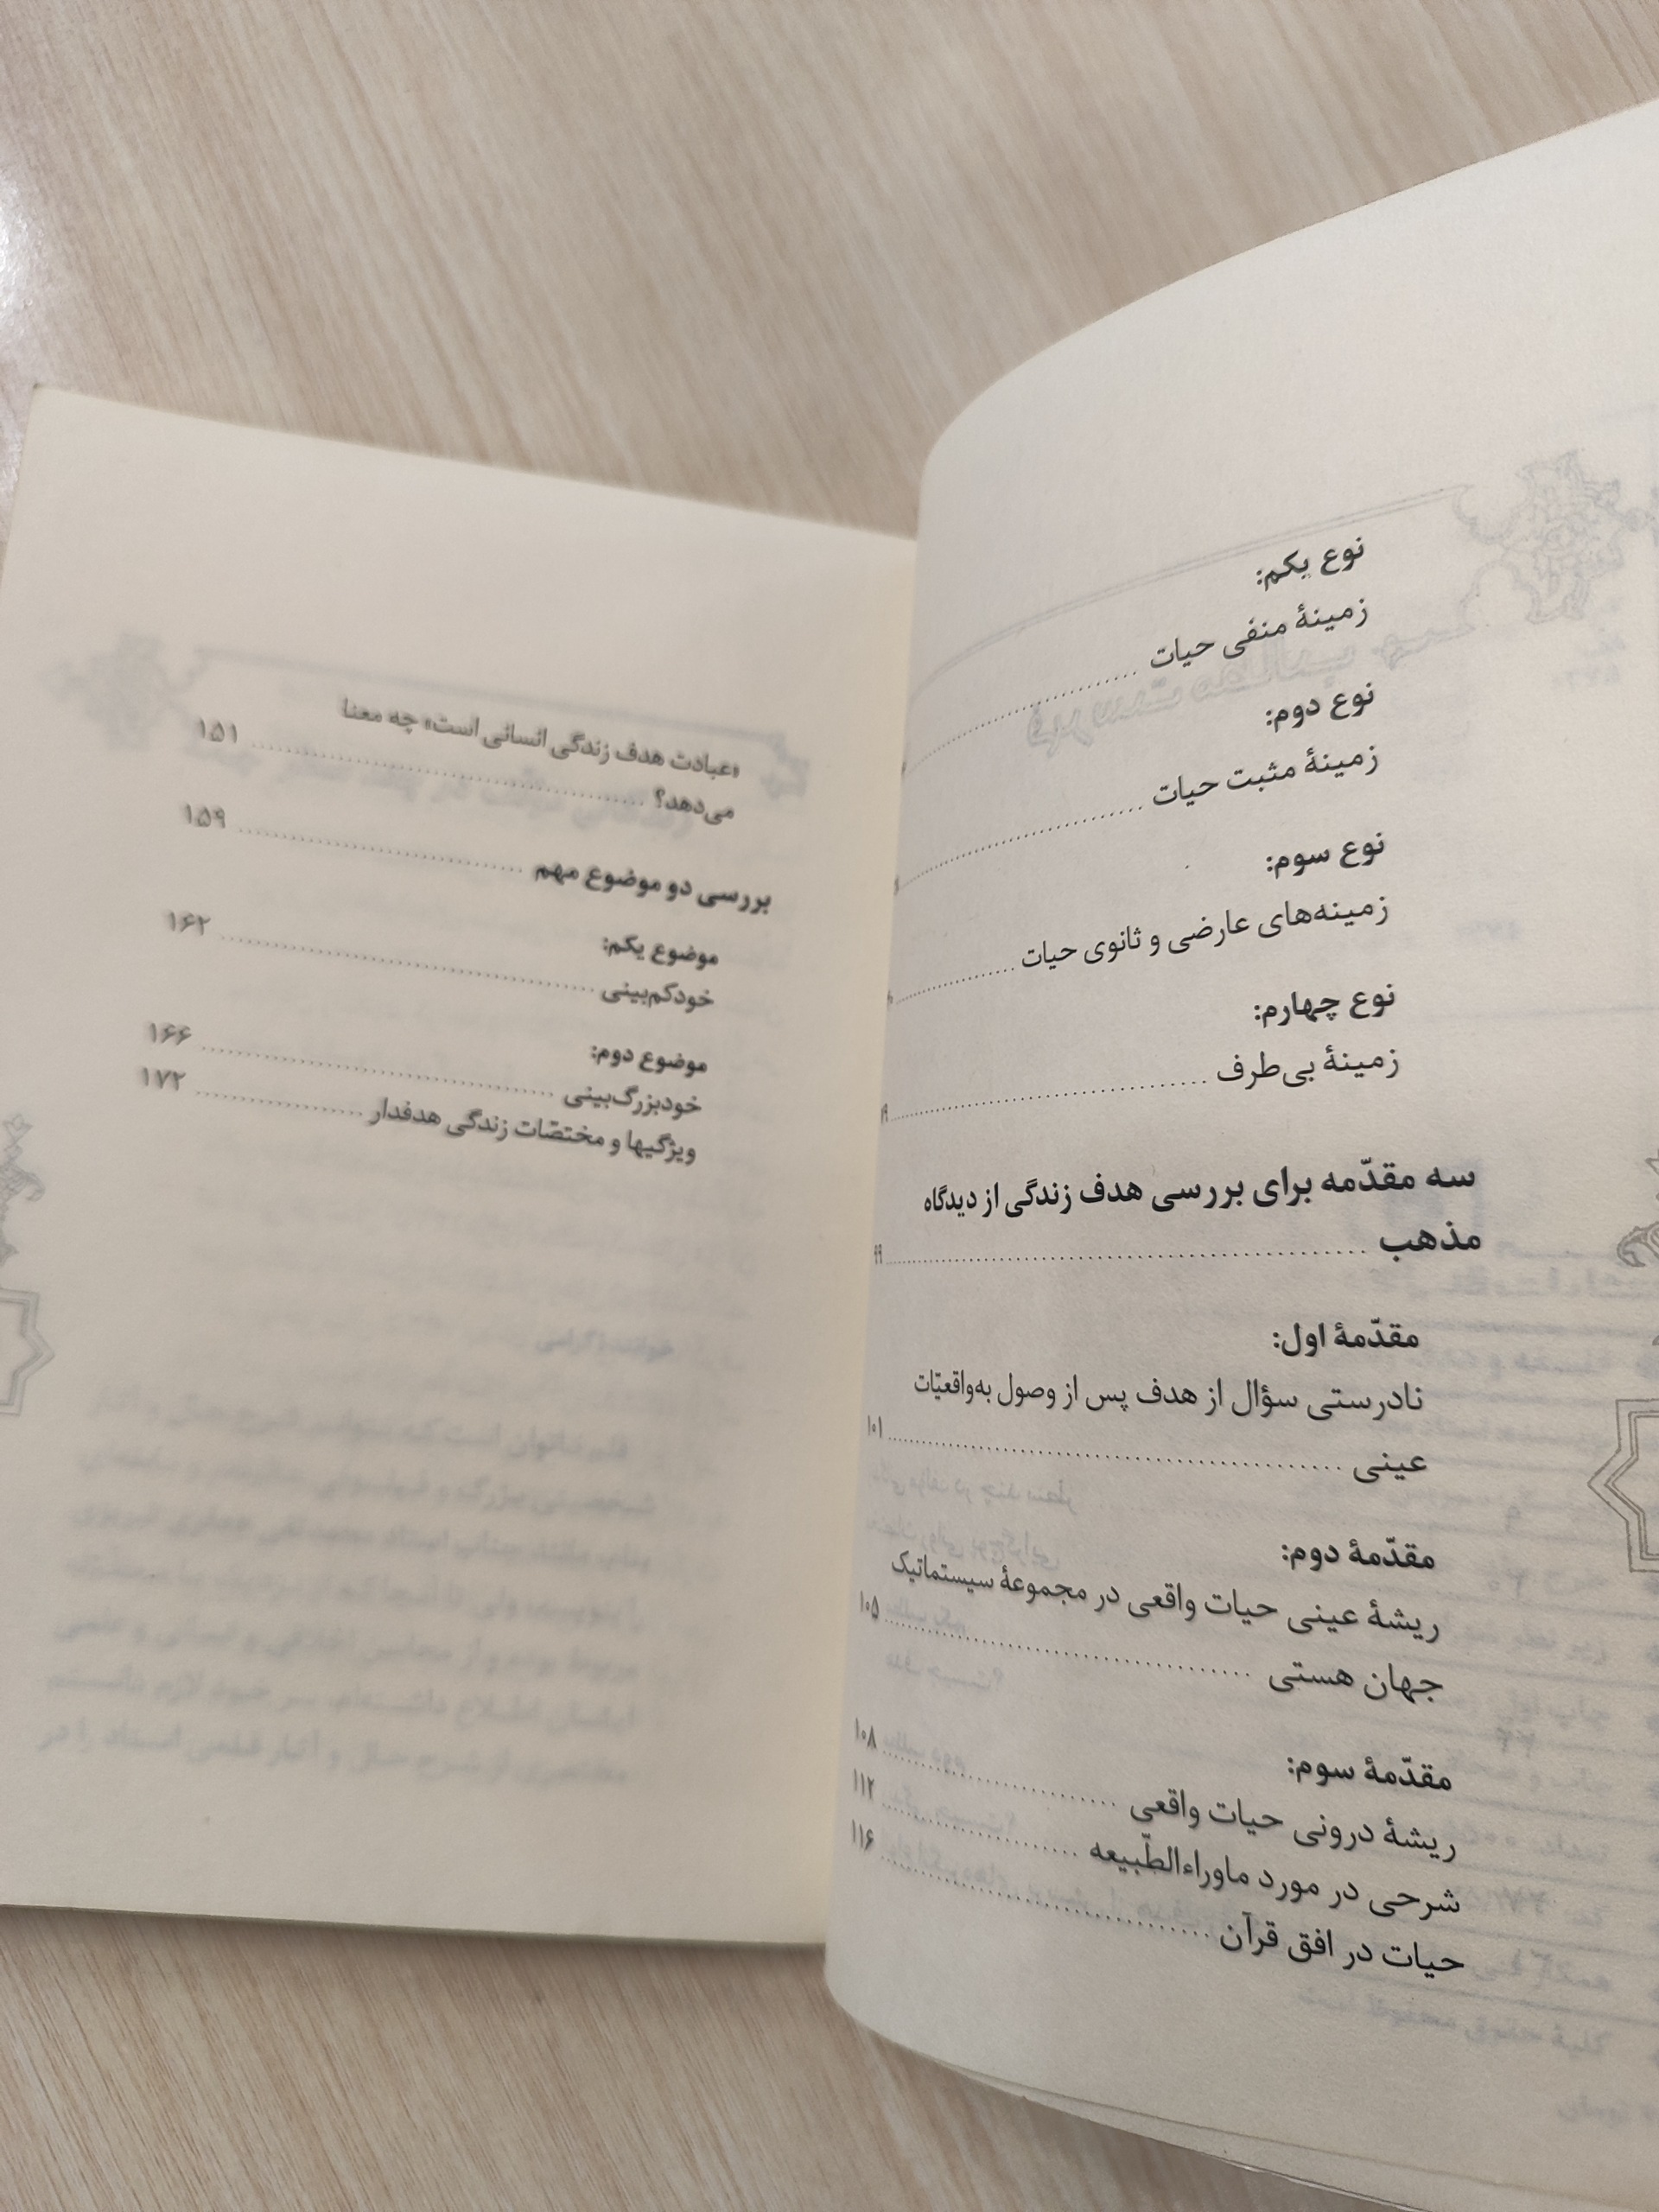 نوع یکم:
زمینهٔ منفی حیات
نوع دوم:
زمینهٔ مثبت حیات
نوع سوم:
زمینه‌های عارضی و ثانوی حیات
نوع چهارم:
زمینهٔ بی‌طرف
سه مقدّمه برای بررسی هدف زندگی از دیدگاه
مذهب ........ ۹۹
مقدّمهٔ اول:
نادرستی سؤال از هدف پس از وصول به‌واقعیّات
عینی ........ ۱۰۱
مقدّمهٔ دوم:
ریشهٔ عینی حیات واقعی در مجموعهٔ سیستماتیک
جهان هستی ........ ۱۰۵
مقدّمهٔ سوم:
ریشهٔ درونی حیات واقعی ........ ۱۰۸
شرحی در مورد ماوراءالطّبیعه ........ ۱۱۲
حیات در افق قرآن ........ ۱۱۶
«عبادت هدف زندگی انسانی است» چه معنا
می‌دهد؟ ........ ۱۵۱
بررسی دو موضوع مهم ........ ۱۵۹
موضوع یکم:
خودکم‌بینی ........ ۱۶۲
موضوع دوم:
خودبزرگ‌بینی ........ ۱۶۶
ویژگیها و مختصّات زندگی هدفدار ........ ۱۷۲